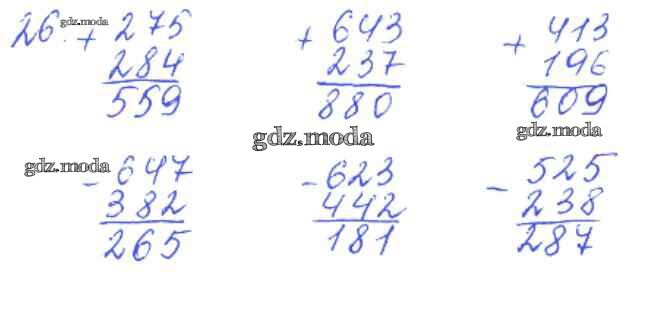 26. gdz.moda
+ 275
284
559
+ 643
237
880
+ 413
196
609
gdz.moda
gdz.moda
gdz.moda
- 647
382
265
- 623
442
181
- 525
238
287